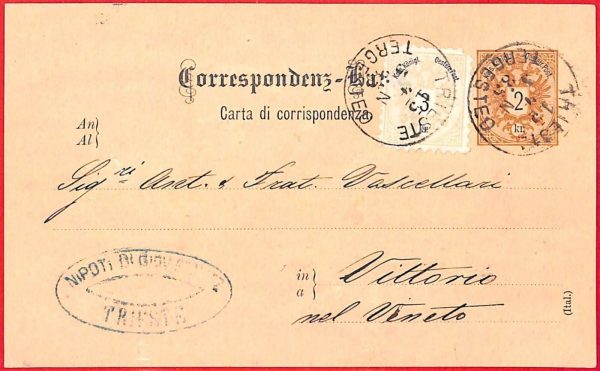 Correspondenz-Kar
Carta di corrispondenza
3
TRIESTE
TERGESTE
2
kr.
TRIEST
TERGESTE
An}
Al}
Sig.ri Ant. & Frat. Vascellari
in}
a}
Vittorio
nel Veneto
NIPOTI DI
TRIESTE
(Ital.)